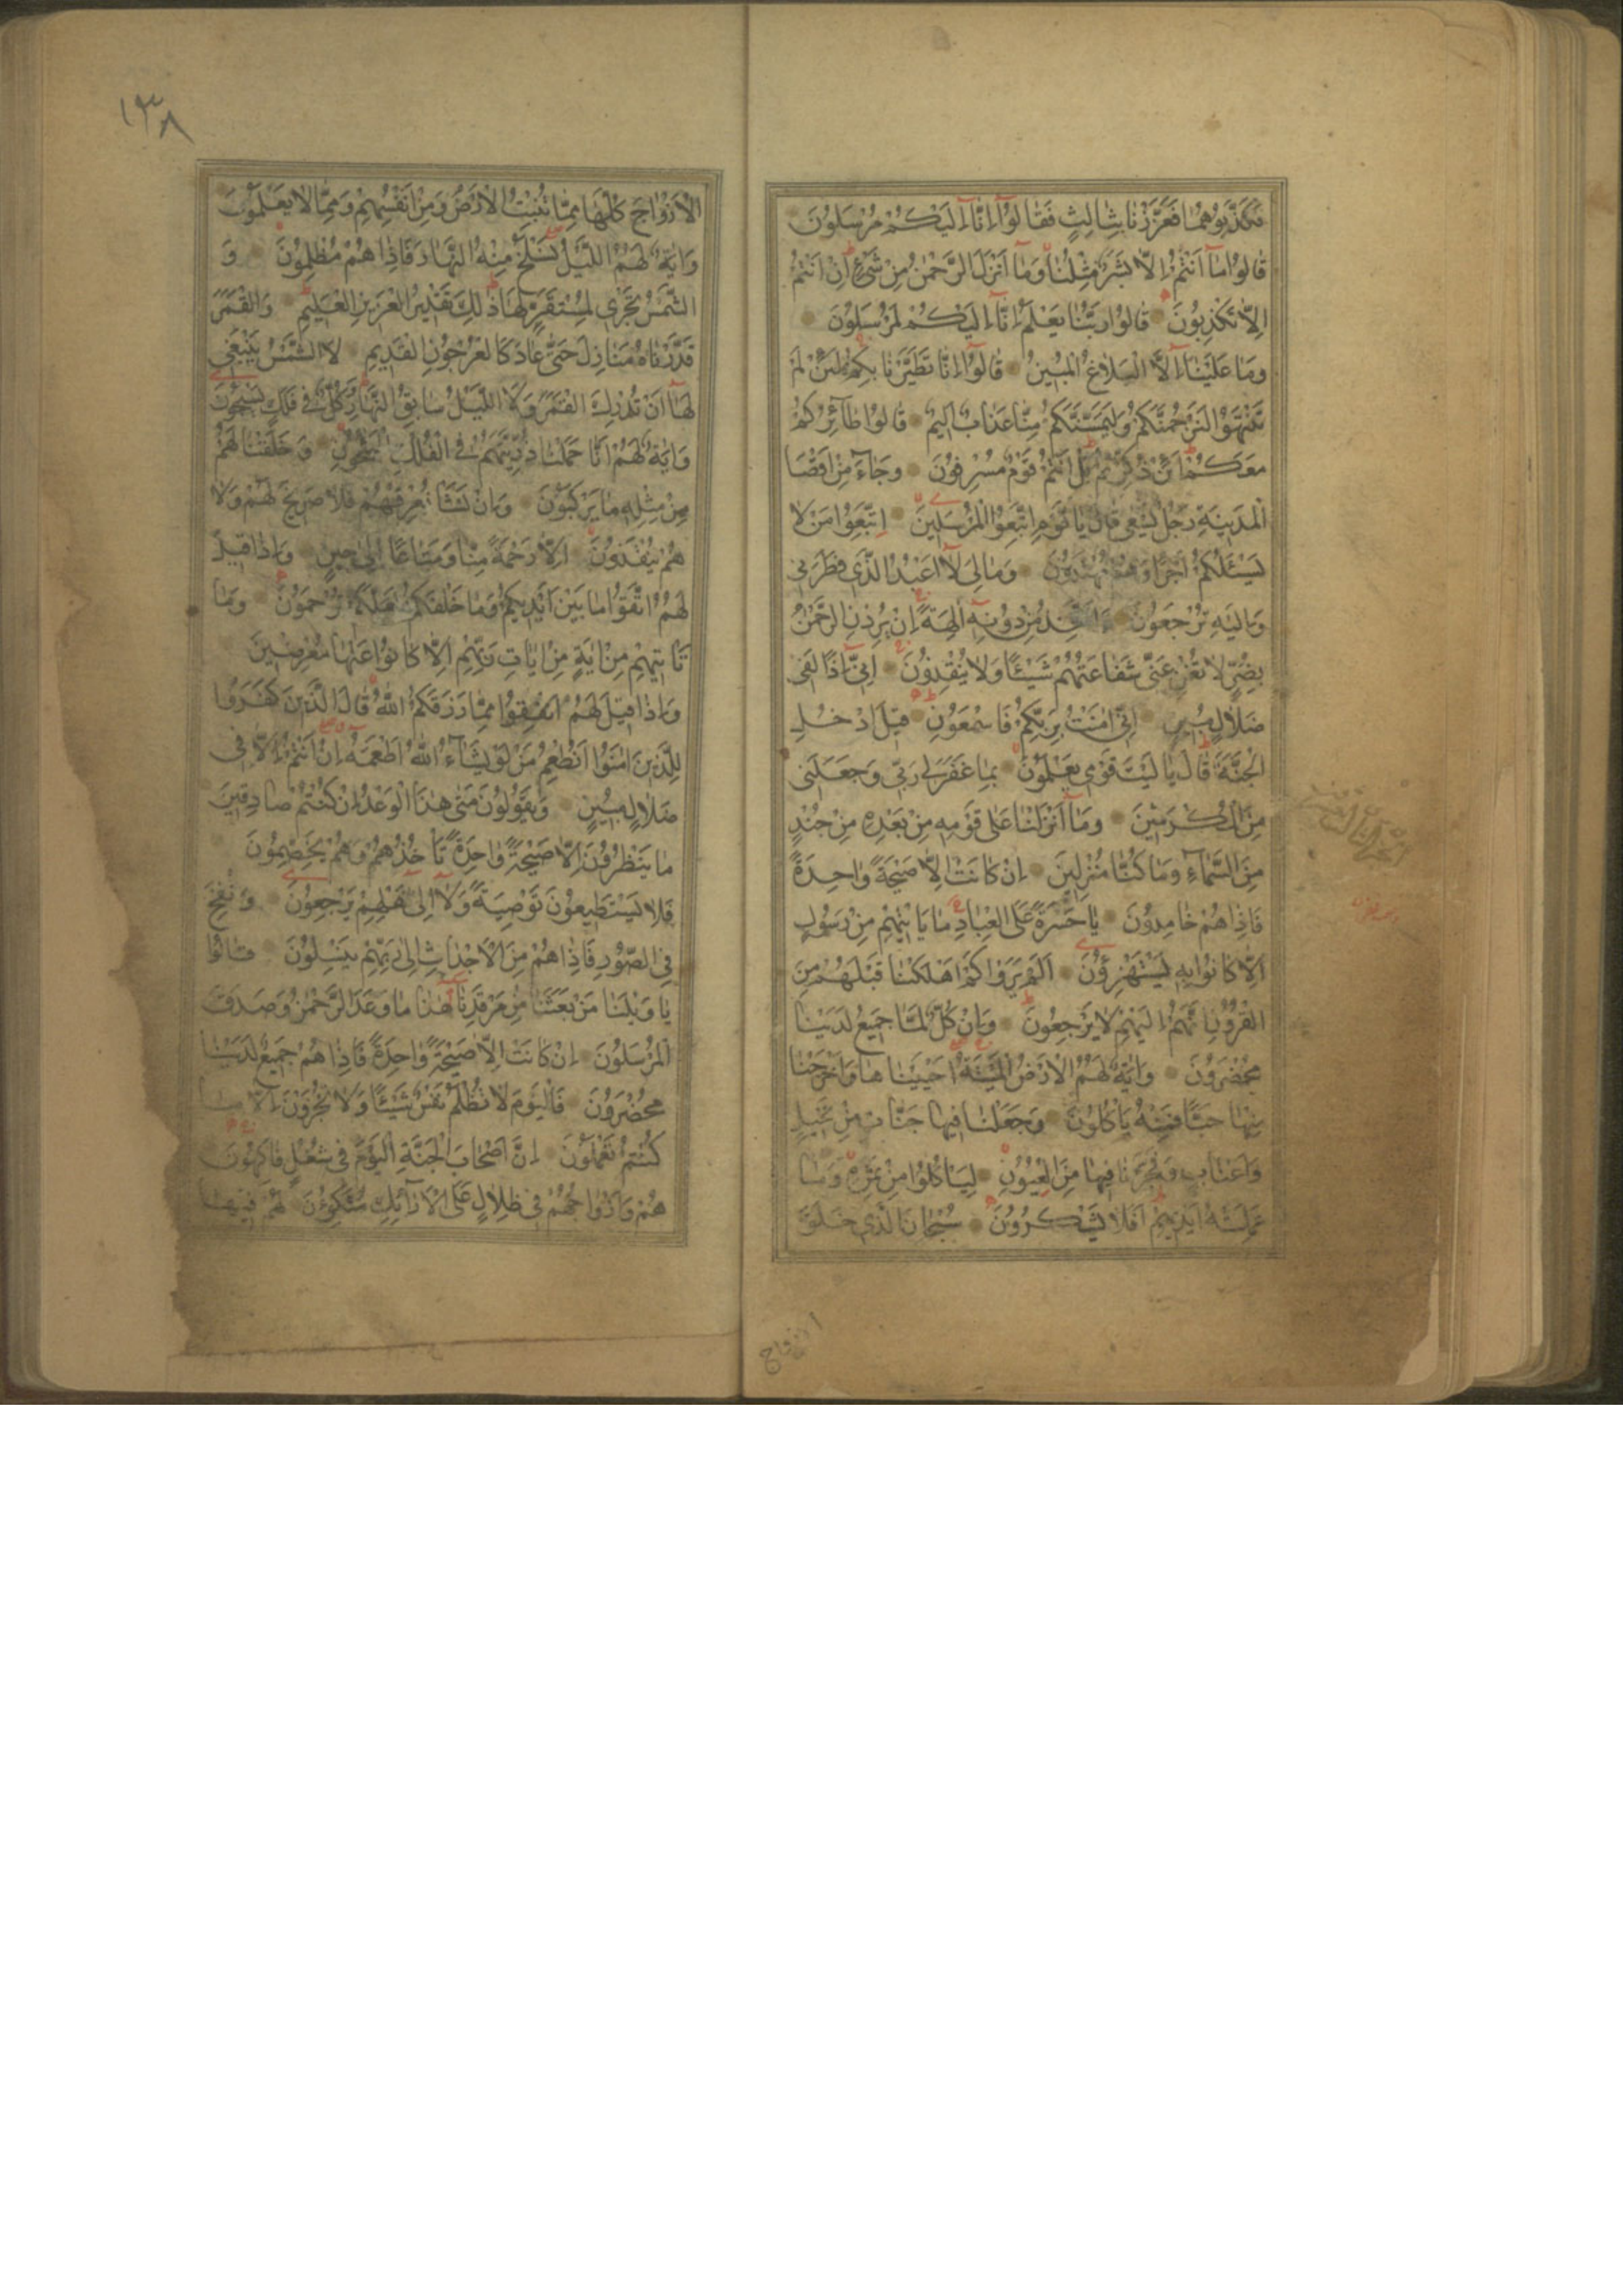 فَكَذَّبُوهُمَا فَعَزَّزْنَا بِثَالِثٍ فَقَالُوٓا اِنَّٓا اِلَيْكُمْ مُرْسَلُونَ
قَالُوا مَٓا اَنْتُمْ اِلَّا بَشَرٌ مِثْلُنَا وَمَٓا اَنْزَلَ الرَّحْمٰنُ مِنْ شَىْءٍ اِنْ اَنْتُمْ
اِلَّا تَكْذِبُونَ قَالُوا رَبُّنَا يَعْلَمُ اِنَّٓا اِلَيْكُمْ لَمُرْسَلُونَ
وَمَا عَلَيْنَٓا اِلَّا الْبَلَاغُ الْمُبِينُ قَالُوٓا اِنَّا تَطَيَّرْنَا بِكُمْ لَئِنْ لَمْ
تَنْتَهُوا لَنَرْجُمَنَّكُمْ وَلَيَمَسَّنَّكُمْ مِنَّا عَذَابٌ اَلِيمٌ قَالُوا طَٓائِرُكُمْ
مَعَكُمْ اَئِنْ ذُكِّرْتُمْ بَلْ اَنْتُمْ قَوْمٌ مُسْرِفُونَ وَجَٓاءَ مِنْ اَقْصَا
الْمَدِينَةِ رَجُلٌ يَسْعٰى قَالَ يَا قَوْمِ اتَّبِعُوا الْمُرْسَلِينَ اِتَّبِعُوا مَنْ لَا
يَسْئَلُكُمْ اَجْرًا وَهُمْ مُهْتَدُونَ وَمَا لِىَ لَٓا اَعْبُدُ الَّذِى فَطَرَنِى
وَاِلَيْهِ تُرْجَعُونَ ءَاَتَّخِذُ مِنْ دُونِهٓ اٰلِهَةً اِنْ يُرِدْنِ الرَّحْمٰنُ
بِضُرٍّ لَا تُغْنِ عَنِّى شَفَاعَتُهُمْ شَيْئًا وَلَا يُنْقِذُونَ اِنِّٓى اِذًا لَفِى
ضَلَالٍ مُبِينٍ اِنِّٓى اٰمَنْتُ بِرَبِّكُمْ فَاسْمَعُونِ قِيلَ ادْخُلِ
الْجَنَّةَ قَالَ يَا لَيْتَ قَوْمِى يَعْلَمُونَ بِمَا غَفَرَ لِى رَبِّى وَجَعَلَنِى
مِنَ الْمُكْرَمِينَ وَمَٓا اَنْزَلْنَا عَلٰى قَوْمِهِ مِنْ بَعْدِهِ مِنْ جُنْدٍ
مِنَ السَّمَٓاءِ وَمَا كُنَّا مُنْزِلِينَ اِنْ كَانَتْ اِلَّا صَيْحَةً وَاحِدَةً
فَاِذَا هُمْ خَامِدُونَ يَا حَسْرَةً عَلَى الْعِبَادِ مَا يَأْتِيهِمْ مِنْ رَسُولٍ
اِلَّا كَانُوا بِهِ يَسْتَهْزِؤُنَ اَلَمْ يَرَوْا كَمْ اَهْلَكْنَا قَبْلَهُمْ مِنَ
الْقُرُونِ اَنَّهُمْ اِلَيْهِمْ لَا يَرْجِعُونَ وَاِنْ كُلٌّ لَمَّا جَمِيعٌ لَدَيْنَا
مُحْضَرُونَ وَاٰيَةٌ لَهُمُ الْاَرْضُ الْمَيْتَةُ اَحْيَيْنَاهَا وَاَخْرَجْنَا
مِنْهَا حَبًّا فَمِنْهُ يَأْكُلُونَ وَجَعَلْنَا فِيهَا جَنَّاتٍ مِنْ نَخِيلٍ
وَاَعْنَابٍ وَفَجَّرْنَا فِيهَا مِنَ الْعُيُونِ لِيَأْكُلُوا مِنْ ثَمَرِهِ وَمَا
عَمِلَتْهُ اَيْدِيهِمْ اَفَلَا يَشْكُرُونَ سُبْحَانَ الَّذِى خَلَقَ
الازواج
١٣٨
الْاَزْوَاجَ كُلَّهَا مِمَّا تُنْبِتُ الْاَرْضُ وَمِنْ اَنْفُسِهِمْ وَمِمَّا لَا يَعْلَمُونَ
وَاٰيَةٌ لَهُمُ اللَّيْلُ نَسْلَخُ مِنْهُ النَّهَارَ فَاِذَا هُمْ مُظْلِمُونَ وَ
الشَّمْسُ تَجْرِى لِمُسْتَقَرٍّ لَهَا ذٰلِكَ تَقْدِيرُ الْعَزِيزِ الْعَلِيمِ وَالْقَمَرَ
قَدَّرْنَاهُ مَنَازِلَ حَتّٰى عَادَ كَالْعُرْجُونِ الْقَدِيمِ لَا الشَّمْسُ يَنْبَغِى
لَهَٓا اَنْ تُدْرِكَ الْقَمَرَ وَلَا اللَّيْلُ سَابِقُ النَّهَارِ وَكُلٌّ فِى فَلَكٍ يَسْبَحُونَ
وَاٰيَةٌ لَهُمْ اَنَّا حَمَلْنَا ذُرِّيَّتَهُمْ فِى الْفُلْكِ الْمَشْحُونِ وَخَلَقْنَا لَهُمْ
مِنْ مِثْلِهِ مَا يَرْكَبُونَ وَاِنْ نَشَأْ نُغْرِقْهُمْ فَلَا صَرِيخَ لَهُمْ وَلَا
هُمْ يُنْقَذُونَ اِلَّا رَحْمَةً مِنَّا وَمَتَاعًا اِلٰى حِينٍ وَاِذَا قِيلَ
لَهُمُ اتَّقُوا مَا بَيْنَ اَيْدِيكُمْ وَمَا خَلْفَكُمْ لَعَلَّكُمْ تُرْحَمُونَ وَمَا
تَأْتِيهِمْ مِنْ اٰيَةٍ مِنْ اٰيَاتِ رَبِّهِمْ اِلَّا كَانُوا عَنْهَا مُعْرِضِينَ
وَاِذَا قِيلَ لَهُمْ اَنْفِقُوا مِمَّا رَزَقَكُمُ اللّٰهُ قَالَ الَّذِينَ كَفَرُوا
لِلَّذِينَ اٰمَنُوا اَنُطْعِمُ مَنْ لَوْ يَشَٓاءُ اللّٰهُ اَطْعَمَهُ اِنْ اَنْتُمْ اِلَّا فِى
ضَلَالٍ مُبِينٍ وَيَقُولُونَ مَتٰى هٰذَا الْوَعْدُ اِنْ كُنْتُمْ صَادِقِينَ
مَا يَنْظُرُونَ اِلَّا صَيْحَةً وَاحِدَةً تَأْخُذُهُمْ وَهُمْ يَخِصِّمُونَ
فَلَا يَسْتَطِيعُونَ تَوْصِيَةً وَلَٓا اِلٰٓى اَهْلِهِمْ يَرْجِعُونَ وَنُفِخَ
فِى الصُّورِ فَاِذَا هُمْ مِنَ الْاَجْدَاثِ اِلٰى رَبِّهِمْ يَنْسِلُونَ قَالُوا
يَا وَيْلَنَا مَنْ بَعَثَنَا مِنْ مَرْقَدِنَا هٰذَا مَا وَعَدَ الرَّحْمٰنُ وَصَدَقَ
الْمُرْسَلُونَ اِنْ كَانَتْ اِلَّا صَيْحَةً وَاحِدَةً فَاِذَا هُمْ جَمِيعٌ لَدَيْنَا
مُحْضَرُونَ فَالْيَوْمَ لَا تُظْلَمُ نَفْسٌ شَيْئًا وَلَا تُجْزَوْنَ اِلَّا مَا
كُنْتُمْ تَعْمَلُونَ اِنَّ اَصْحَابَ الْجَنَّةِ الْيَوْمَ فِى شُغُلٍ فَاكِهُونَ
هُمْ وَاَزْوَاجُهُمْ فِى ظِلَالٍ عَلَى الْاَرَٓائِكِ مُتَّكِؤُنَ لَهُمْ فِيهَا